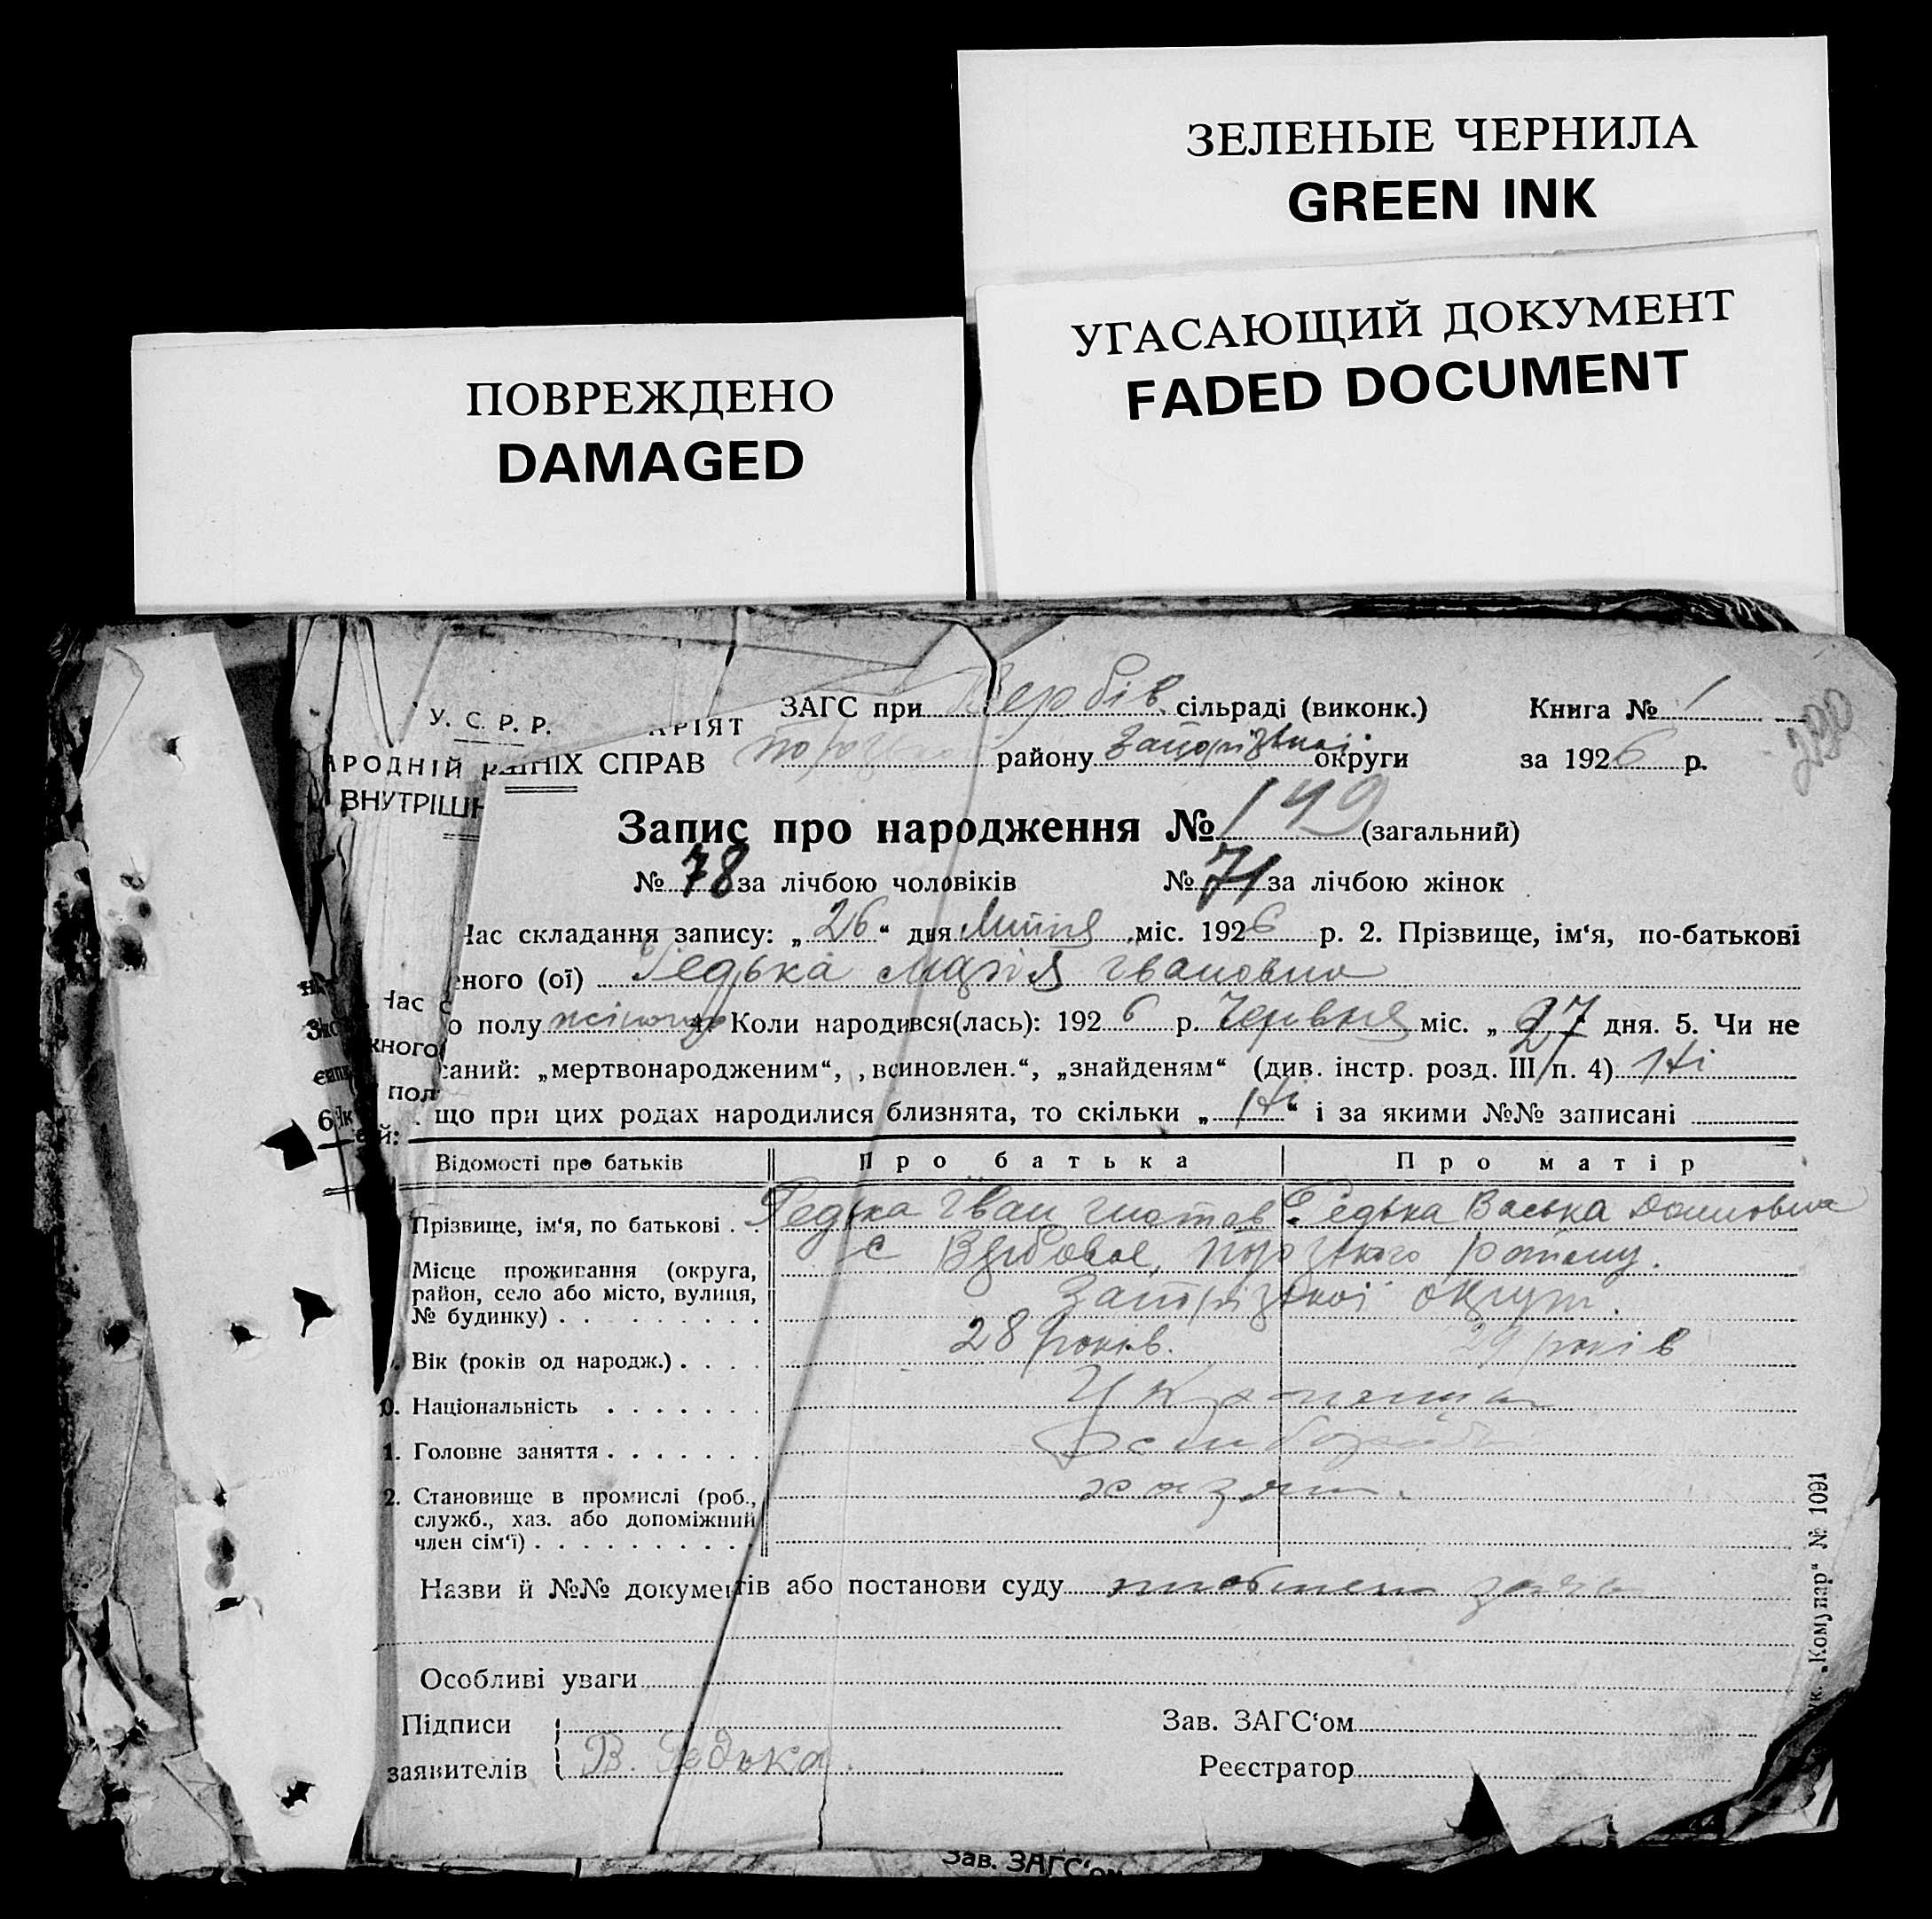 ЗЕЛЕНЫЕ ЧЕРНИЛА
GREEN INK
УГАСАЮЩИЙ ДОКУМЕНТ
FADED DOCUMENT
ПОВРЕЖДЕНО
DAMAGED
У. С. Р. Р.
РІЯТ
АРОДНІЙ
СПРАВ
ВНУТРІШН
ЗАГС при Вербів сільраді (виконк.) Книга № 1
230
району Запорізької округи за 1926 р.
Запис про народження № 149 (загальний)
№ 78 за лічбою чоловіків № 71 за лічбою жінок
Час складання запису: „26“ дня Липня міс. 1926 р. 2. Прізвище, ім‘я, по-батькові
еного (ої) Редька Марія Івановна
о полу жіночого 4. Коли народився(лась): 1926 р. Червня міс. „27“ дня. 5. Чи не
саний: „мертвонародженим“, „всиновлен.“, „знайденям“ (див. інстр. розд. III п. 4) Ні
що при цих родах народилися близнята, то скільки „Ні“ і за якими №№ записані
Відомості про батьків Про батька Про матір
Прізвище, ім‘я, по батькові . . Редька Іван Редька Васька
Місце проживання (округа, район, село або місто, вулиця, № будинку) . . . . . . . . . с Вербове, району.
Запорізької округи.
Вік (років од народж.) . . . . 28 років. 29 років
0. Національність . . . . . . .
1. Головне заняття . . . . . . .
2. Становище в промислі (роб., служб., хаз. або допоміжний член сім‘ї) . . . . . . . . . .
Назви й №№ документів або постанови суду
Особливі уваги
Підписи
заявителів В. Редька.
Зав. ЗАГС‘ом
Реєстратор
„Комунар“ № 1091
Зав. ЗАГС‘ом